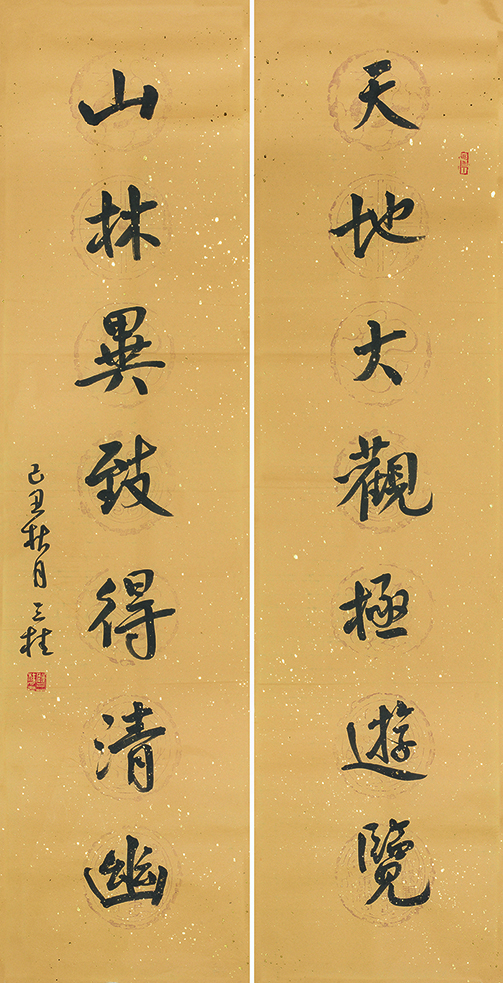 天地大觀極遊覽
山林異致得清幽
己丑秋月 三桂